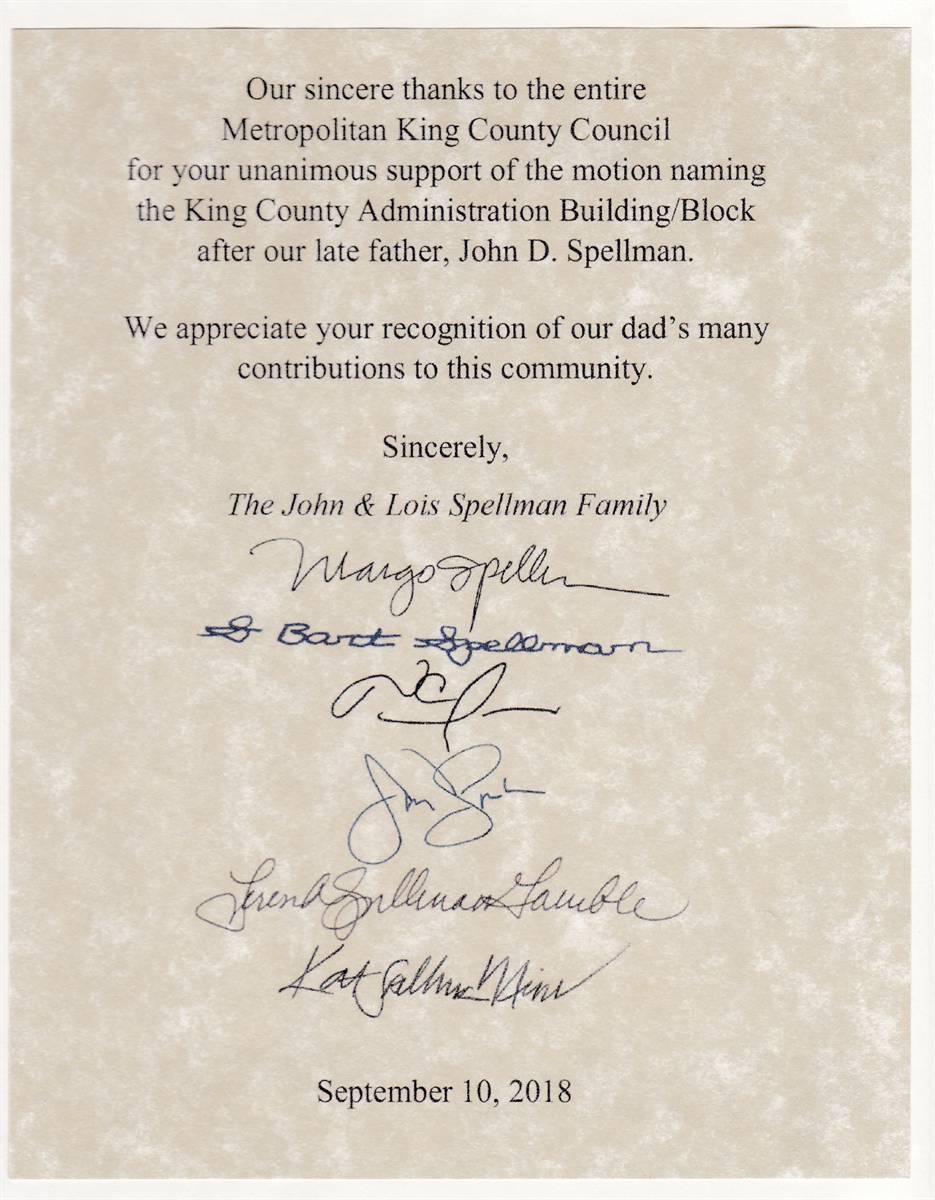 Our sincere thanks to the entire
Metropolitan King County Council
for your unanimous support of the motion naming
the King County Administration Building/Block
after our late father, John D. Spellman.
We appreciate your recognition of our dad's many
contributions to this community.
Sincerely,
The John & Lois Spellman Family
Margo Spellman
S Bart Spellman
Spellman Gamble
September 10, 2018